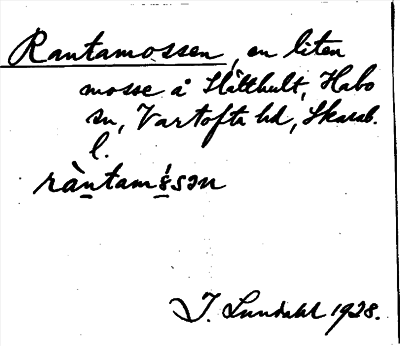 Rantamossen, en liten
mosse å Slätthult, Habo
sn, Vartofte hd, Skarab.
l.
I. Lundahl 1928.